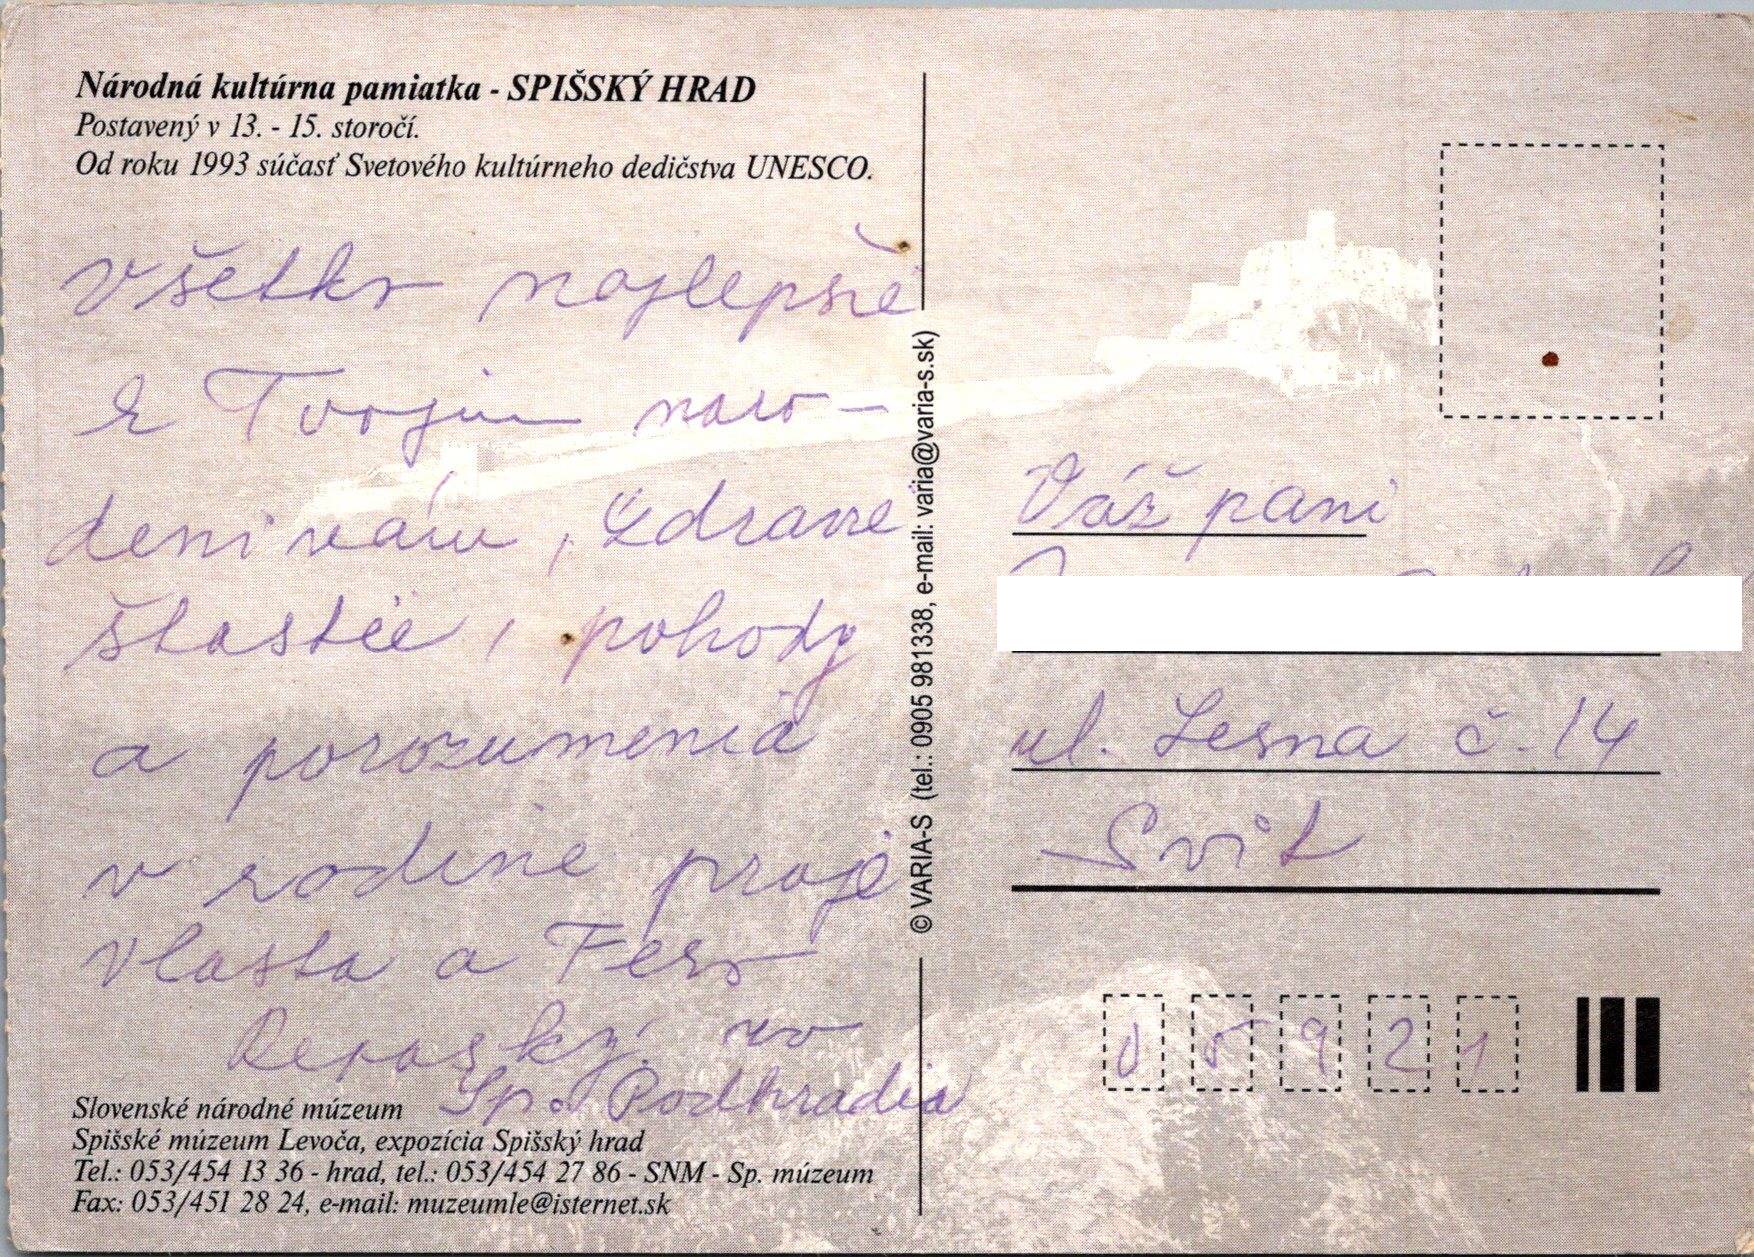 Národná kultúrna pamiatka - SPIŠSKÝ HRAD
Postavený v 13. - 15. storočí.
Od roku 1993 súčasť Svetového kultúrneho dedičstva UNESCO.
Všetko najlepšie
k Tvojim naro-
deninám, Zdravie
šťastie, pohody
a porozumenia
v rodine praje
Vlasta a Fero
zo
Sp. Podhradia
Slovenské národné múzeum
Spišské múzeum Levoča, expozícia Spišský hrad
Tel.: 053/454 13 36 - hrad, tel.: 053/454 27 86 - SNM - Sp. múzeum
Fax: 053/451 28 24, e-mail: muzeumle@isternet.sk
© VARIA-S (tel.: 0905 981338, e-mail: varia@varia-s.sk)
Váž pani
ul. Lesna č. 14
Svit
05921